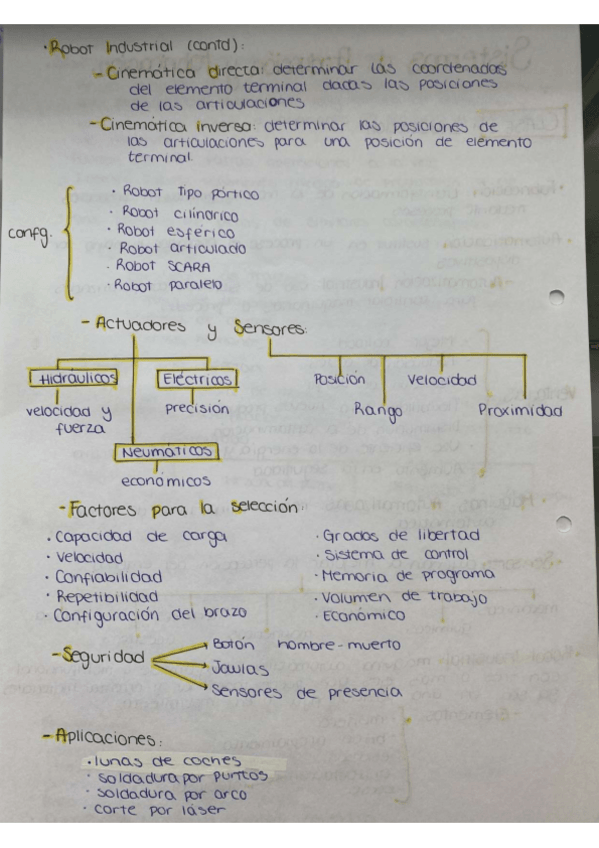 · Robot Industrial (contd):
- Cinemática directa: determinar las coordenadas
del elemento terminal dadas las posiciones
de las articulaciones
- Cinemática inversa: determinar las posiciones de
las articulaciones para una posición de elemento
terminal.
confg.
· Robot Tipo pórtico
· Robot cilíndrico
· Robot esférico
· Robot articulado
· Robot SCARA
· Robot paralelo
- Actuadores y Sensores:
Hidráulicos Eléctricos Posición Velocidad
velocidad y precisión Rango Proximidad
fuerza
Neumáticos
económicos
- Factores para la selección:
· Capacidad de carga
· Velocidad
· Confiabilidad
· Repetibilidad
· Configuración del brazo
· Grados de libertad
· Sistema de control
· Memoria de programa
· Volumen de trabajo
· Económico
- Seguridad
Botón hombre-muerto
Jaulas
Sensores de presencia
- Aplicaciones:
· lunas de coches
· soldadura por puntos
· soldadura por arco
· corte por láser